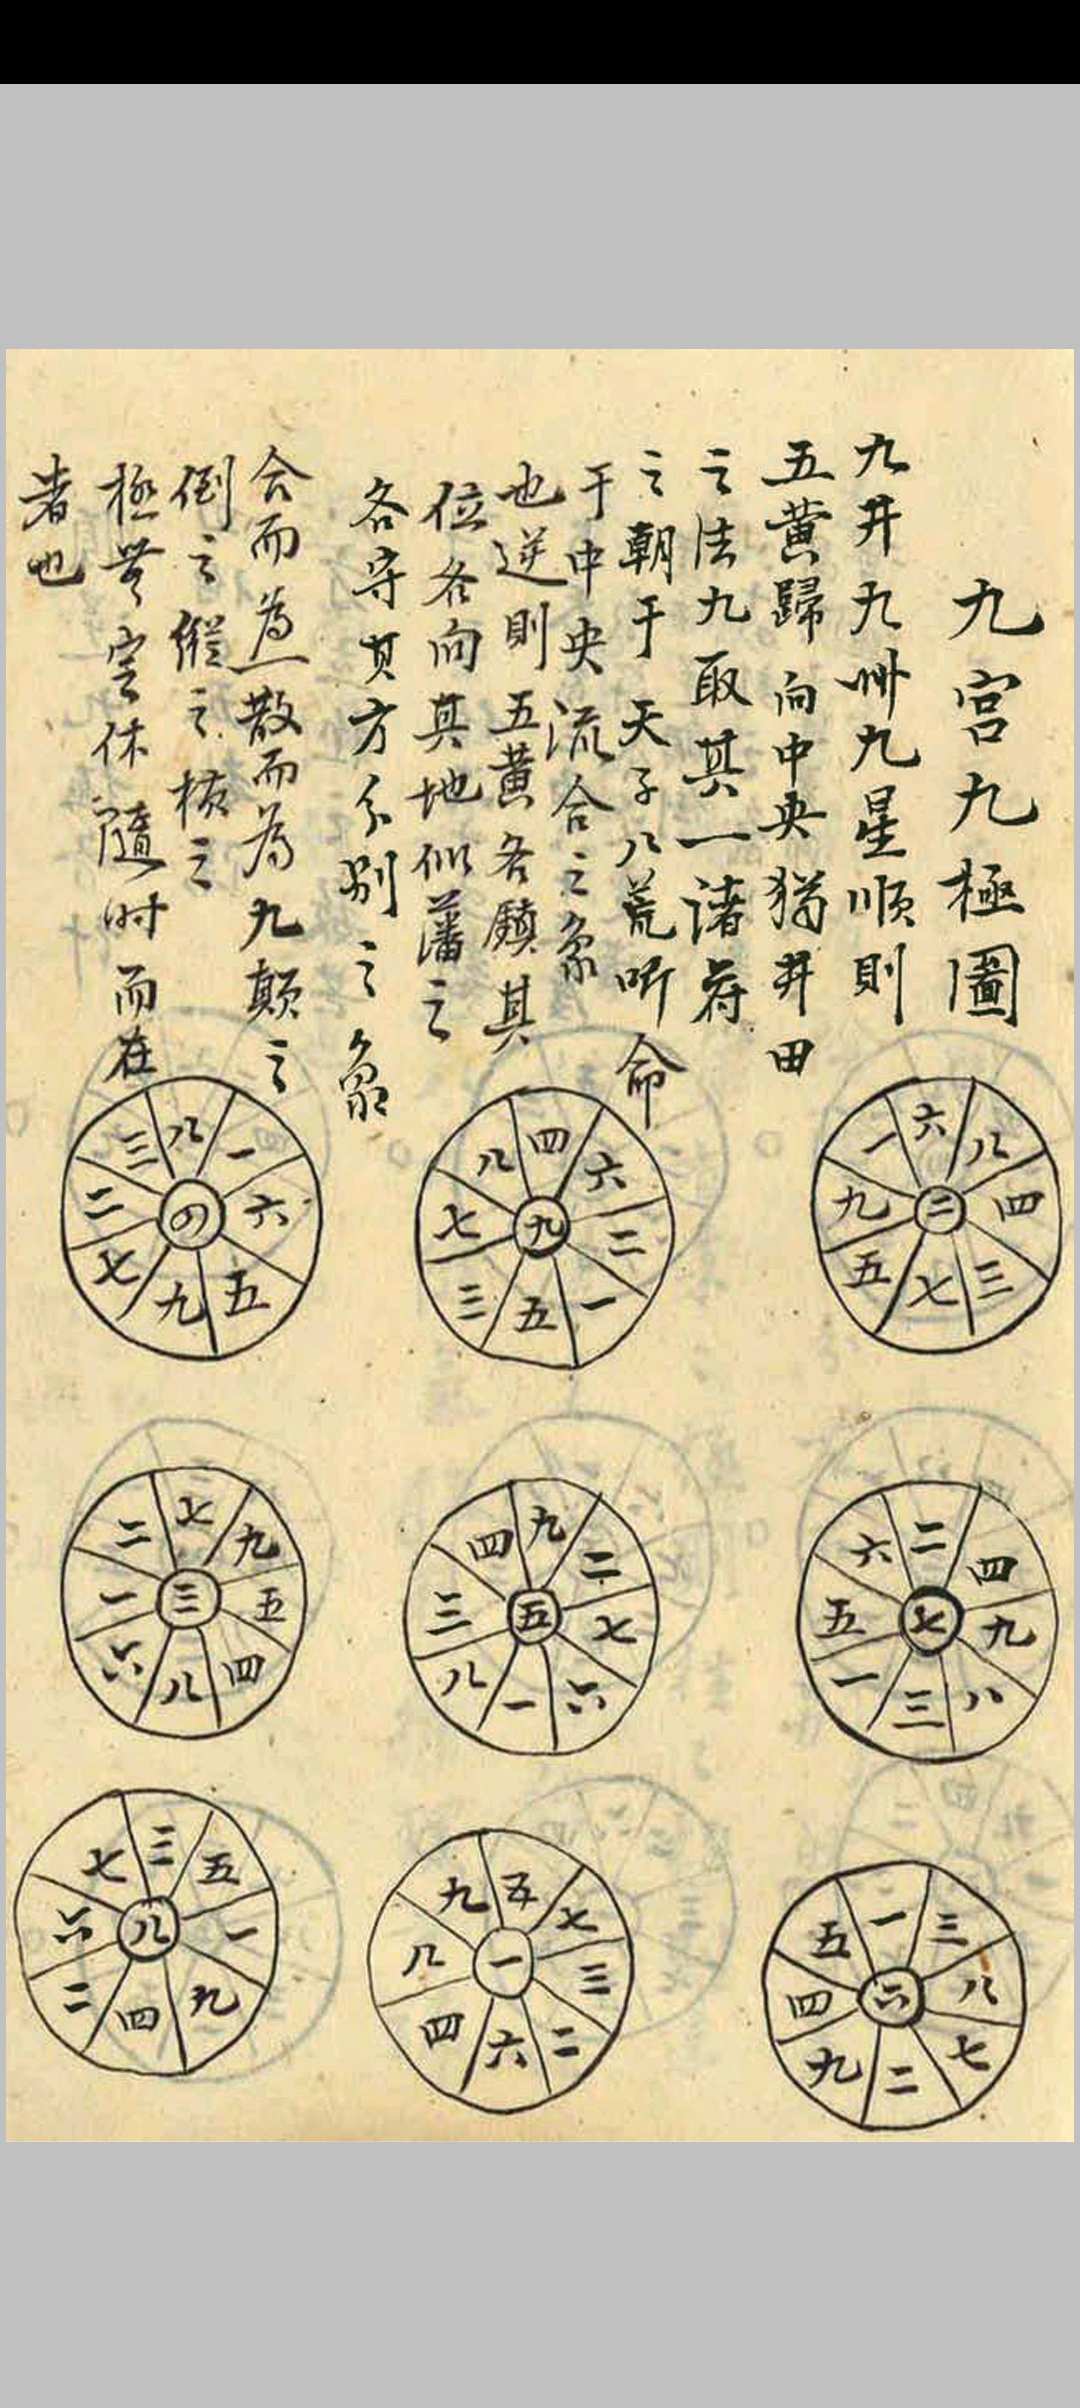 九宮九極圖
九井九州九星順則
五黃歸向中央猶井田
之法九取其一諸
之朝于天子八荒听命
于中央流合之象
也逆則五黃各鎮其
位各向其地似藩之
各守其方分别之象
合而為一散而為九顛之
倒之縱之橫之
極無定体隨时而在
者也
二 六 八 四 三 七 五 九 一
九 四 六 二 一 五 三 七 八
四 八 一 六 五 九 七 二 三
七 二 四 九 八 三 一 五 六
五 九 二 七 六 一 八 三 四
三 七 九 五 四 八 六 一 二
六 一 三 八 七 二 九 四 五
一 五 七 三 二 六 四 八 九
八 三 五 一 九 四 二 六 七